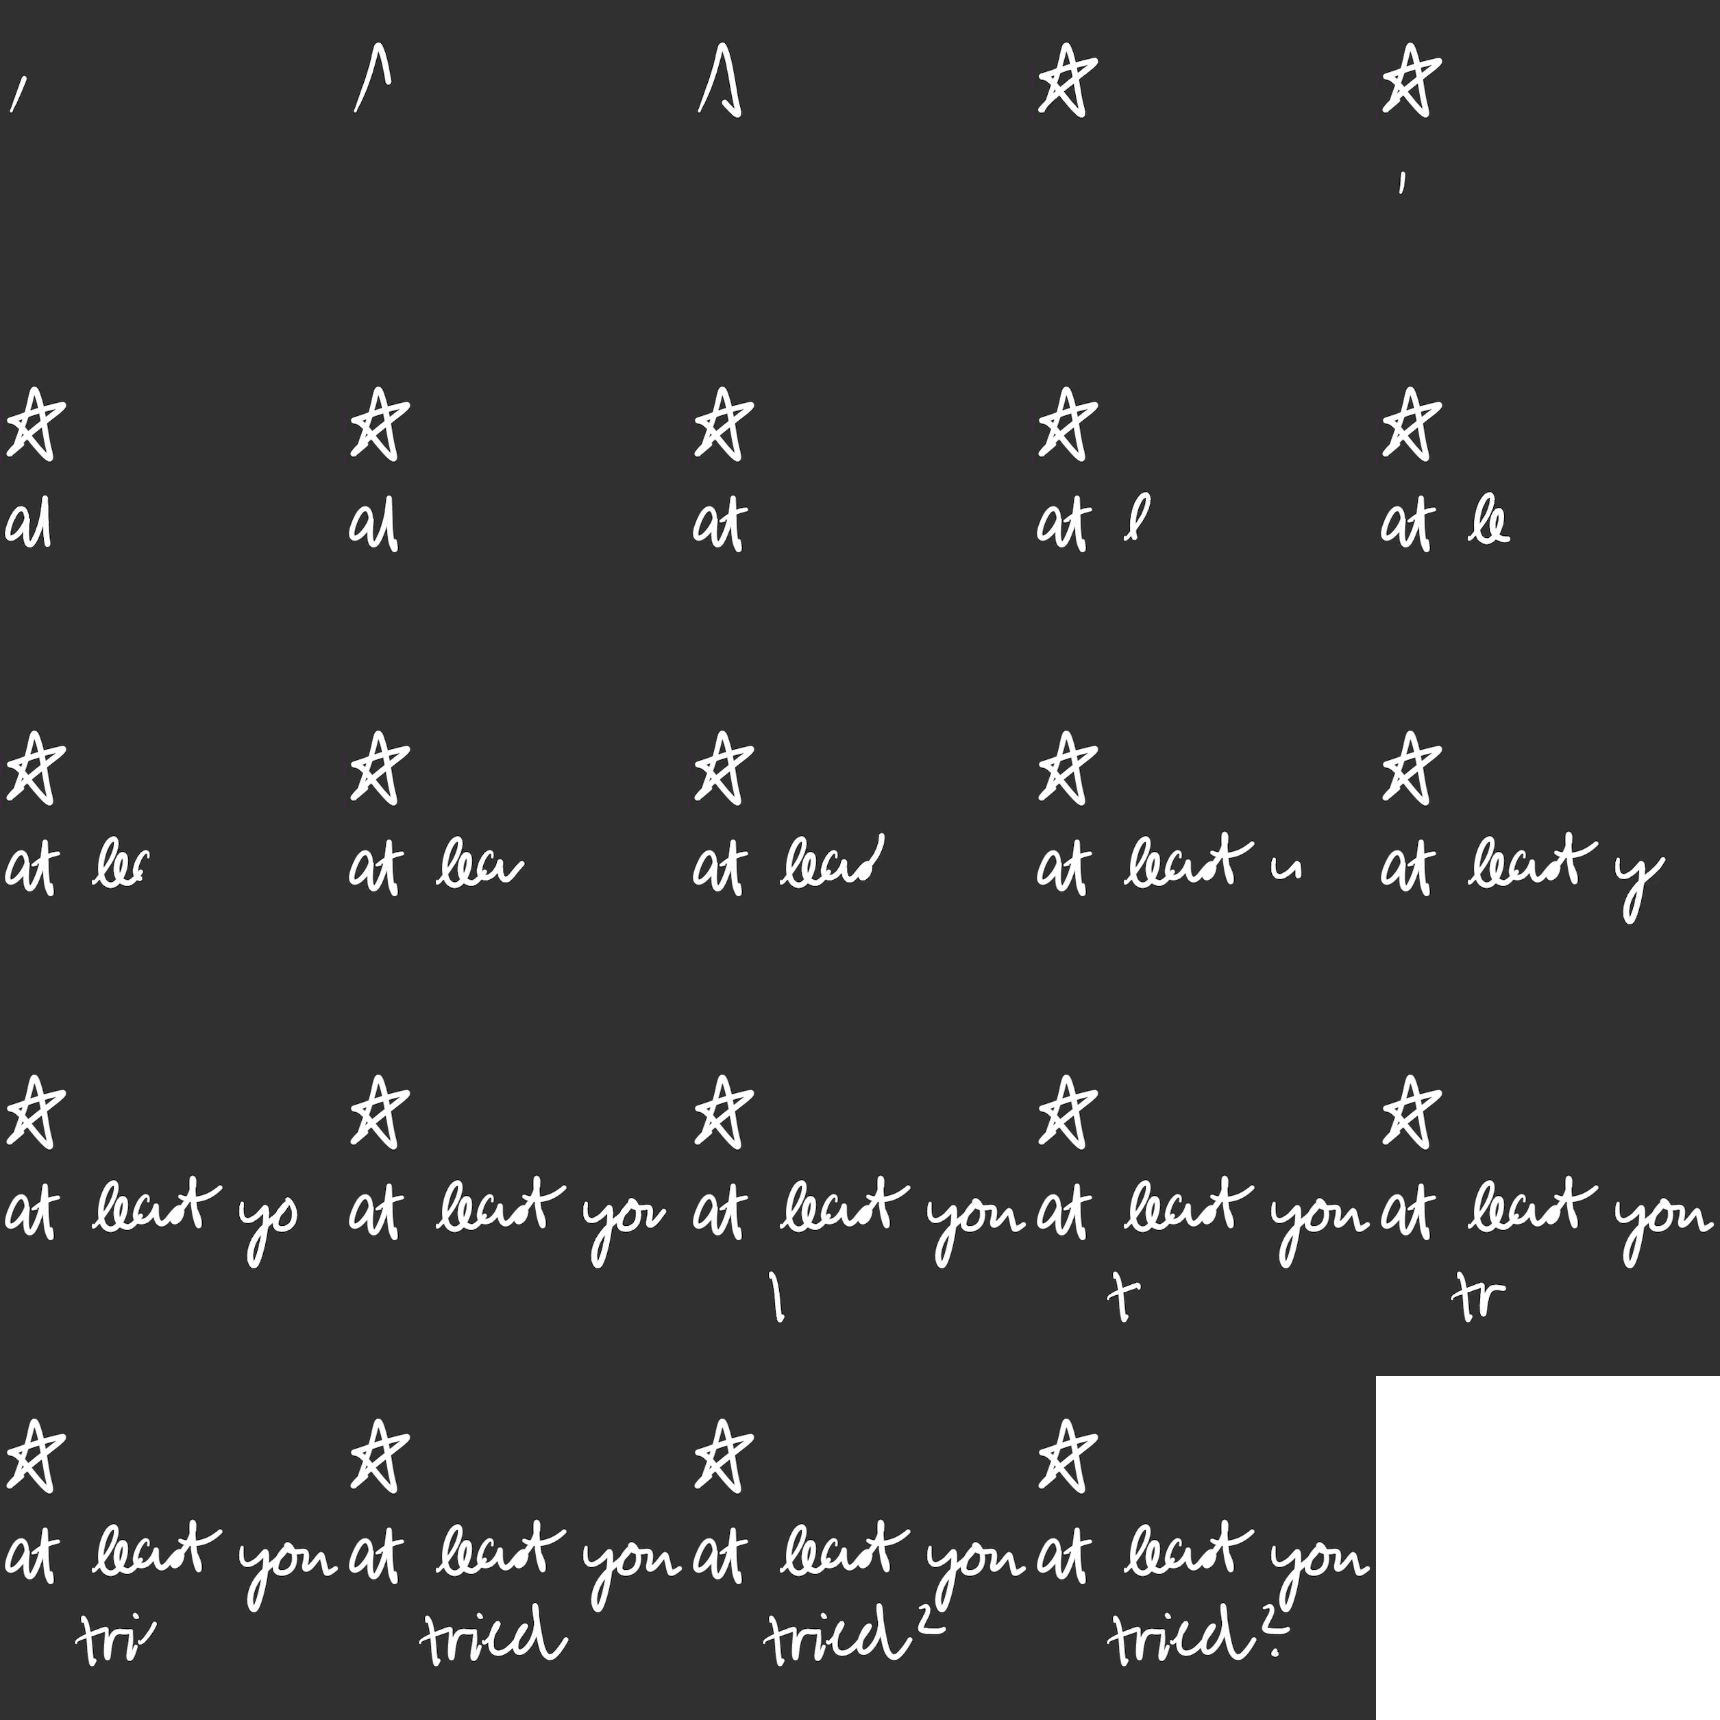 al al at at l at le
at lec at lea at leas at least u at least y
at least yo at least you at least you at least you at least you
t tr
at least you at least you at least you at least you
tri tried tried? tried?